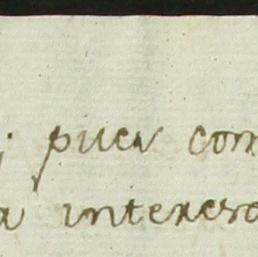 ; pues com
a interesa